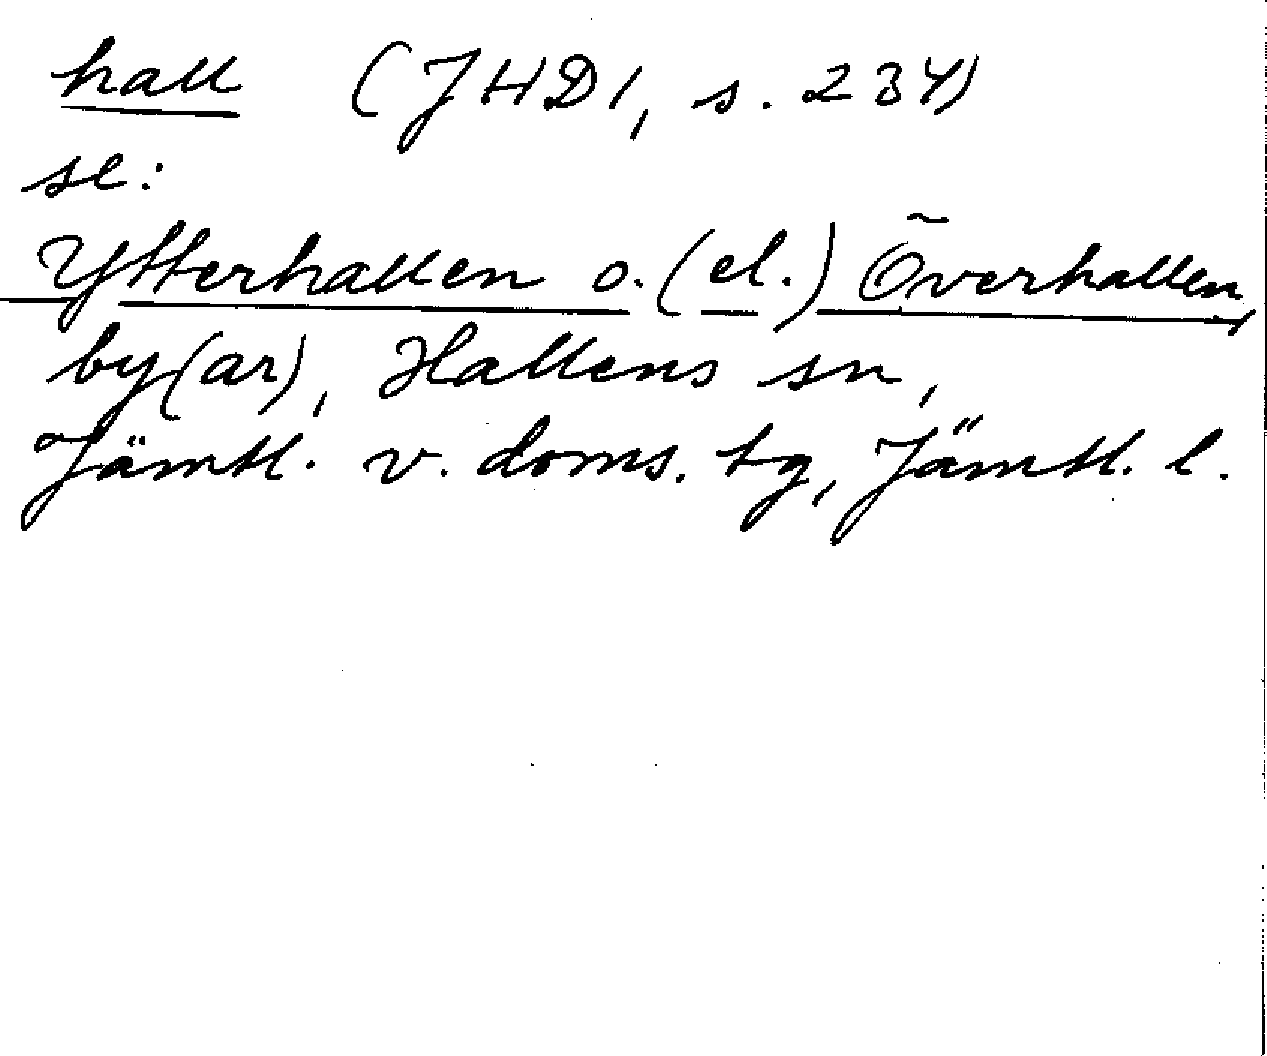 hall (JHD1, s. 234)
se:
Ytterhallen o. (el.) Överhallen,
by(ar), Hallens sn,
Jämtl. v. doms. tg, Jämtl. l.